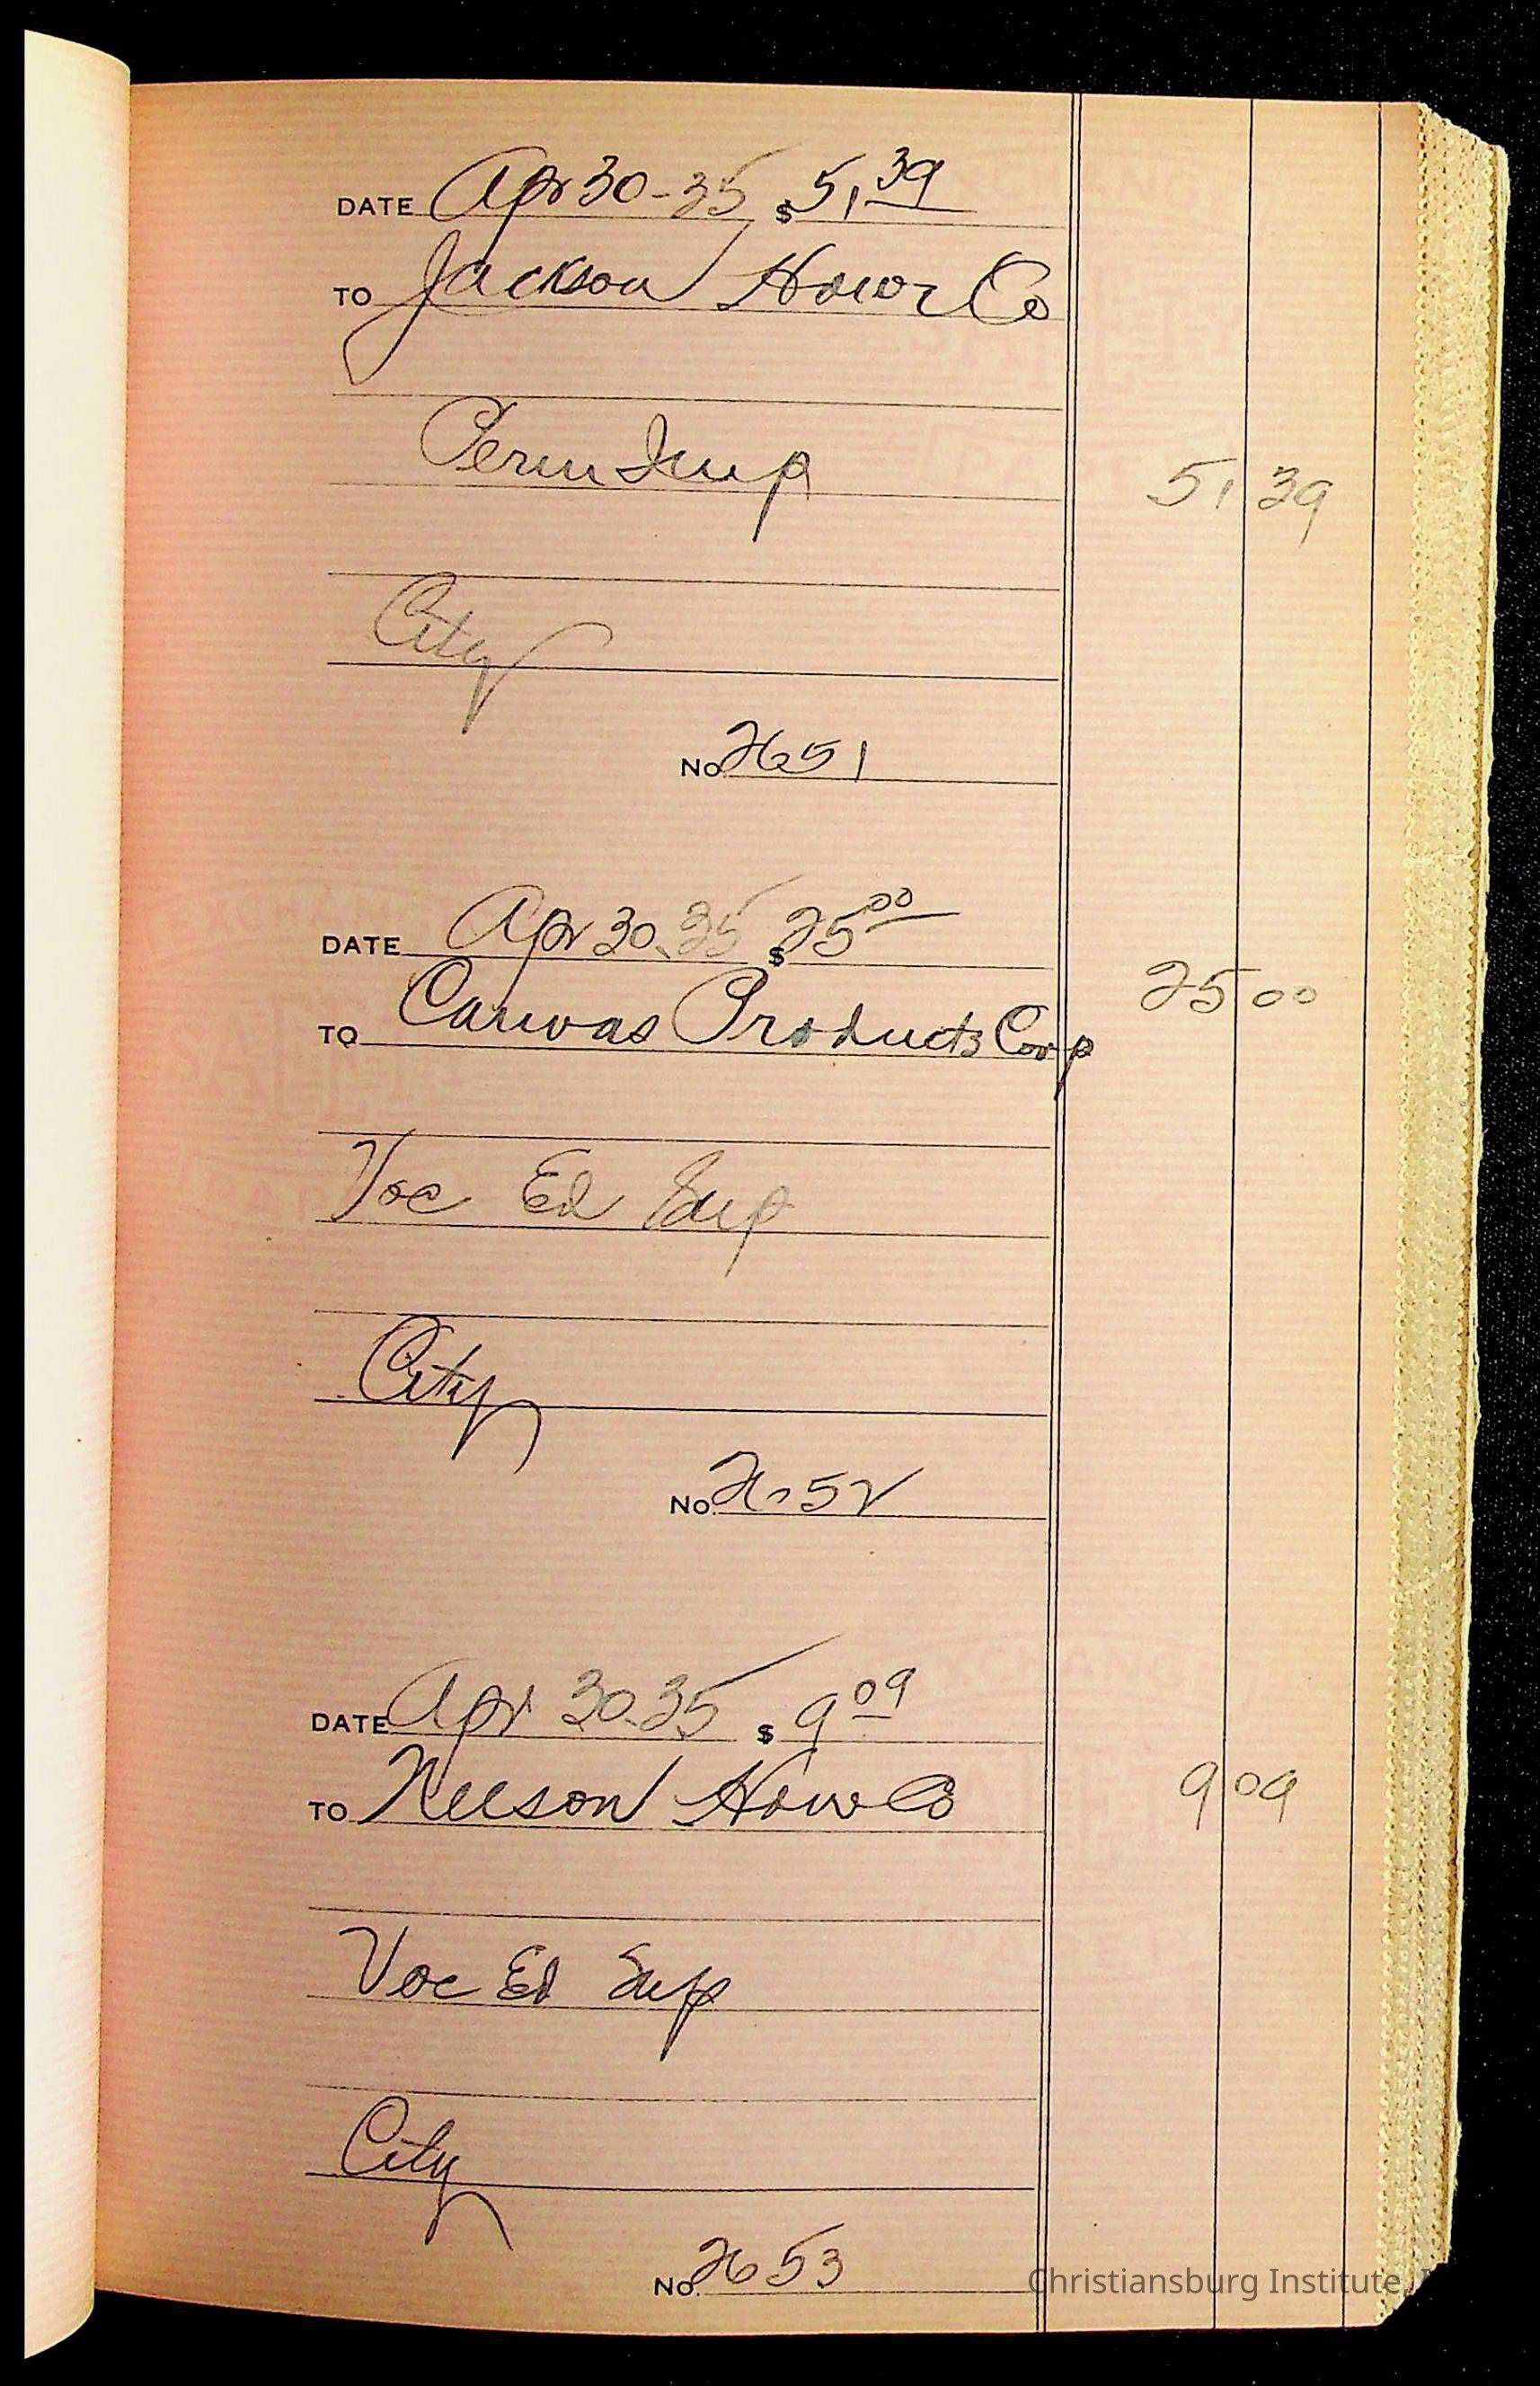 DATE Apr 30-35 $ 5,39
TO Jackson Howr Co
Perm Imp
5,39
City
No 2651
DATE Apr 30-35 $ 25 00
25 00
TO Canvas Products Corp
Voc Ed Sup
City
No 2652
DATE Apr 30-35 $ 9 09
TO Nelson Howr Co
9 09
Voc Ed Sup
City
No 2653
Christiansburg Institute,